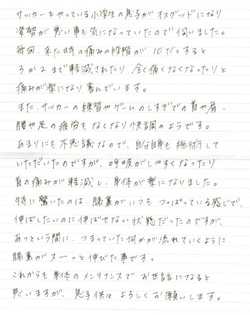 サッカーをやっている小学生の息子がオスグッドになり
姿勢が悪い事も気になっていたので伺いました。
毎回、来た時の痛みの段階が10だとすると
3か2まで軽減されたり、全く痛くなくなったりと
痛みが楽になり喜んでいます。
また、サッカーの練習やゲームのしすぎでの首や肩、
腰や足の疲労もなくなり快調のようです。
あまりにも不思議なので、自分自身も施術して
いただいたのですが、呼吸がしやすくなったり
首の痛みが軽減し、身体が楽になりました。
特に驚いたのは、膝裏がいつもつっぱっている感じで、
伸ばしたいのに伸ばせない状態だったのですが、
あっという間に、つまっていた何かが流れていくように
膝裏がスーッと伸びた事です。
これからも身体のメンテナンスでお世話になると
思いますが、息子共々よろしくお願いします。